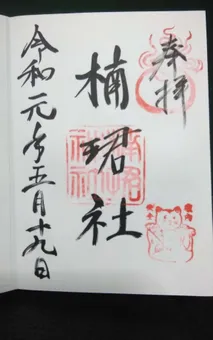 奉拝
楠珺社
令和元年五月十九日